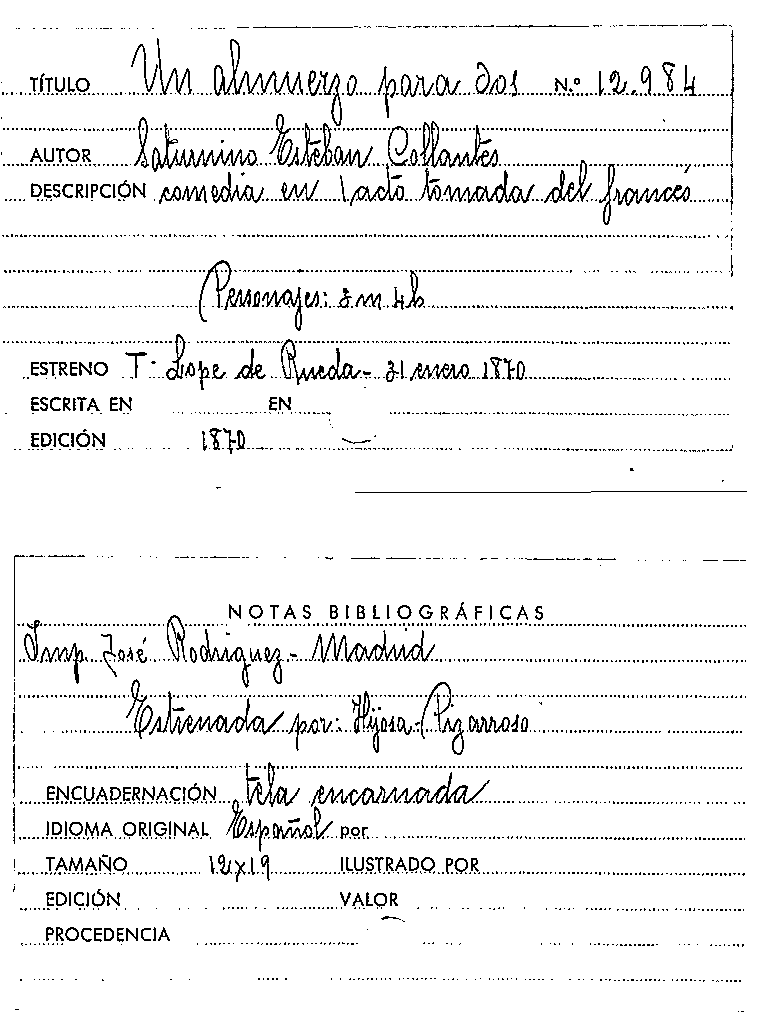 TÍTULO Un almuerzo para dos N.º 12.984
AUTOR Saturnino Esteban Collantes
DESCRIPCIÓN comedia en 1 acto tomada del francés
Personajes: 3m 4h
ESTRENO Tº Lope de Rueda - 31 enero 1870
ESCRITA EN EN
EDICIÓN 1870
NOTAS BIBLIOGRÁFICAS
Imp. José Rodriguez - Madrid
Estrenada por: Hijosa - Pizarroso
ENCUADERNACIÓN tela encarnada
IDIOMA ORIGINAL Español por
TAMAÑO 12x19 ILUSTRADO POR
EDICIÓN VALOR
PROCEDENCIA